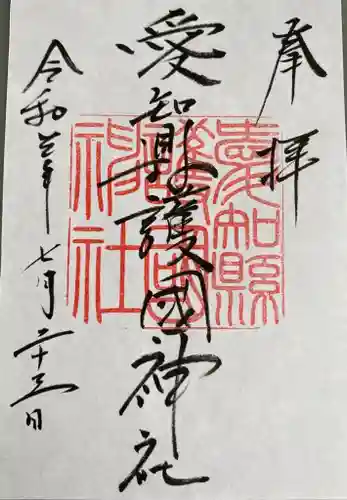 奉拝
愛知縣護國神社
愛知縣
護國
神社
令和三年七月二十三日